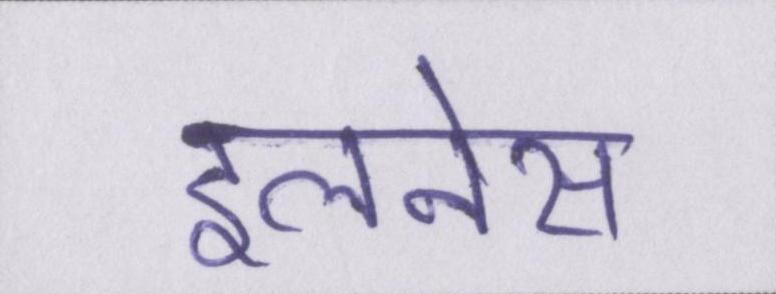 इलनेस